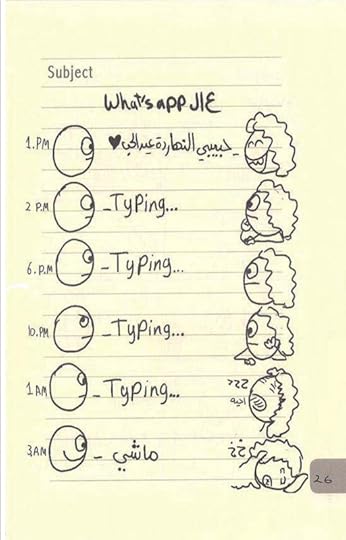 Subject
عال What's app
1.PM _ حبيبي النهاردة عيدالحب ♥
2 P.M _ Typing...
6.P.M _ Typing...
10.PM _ Typing...
1 AM _ Typing... zzz
3AM _ ماشي zz
26